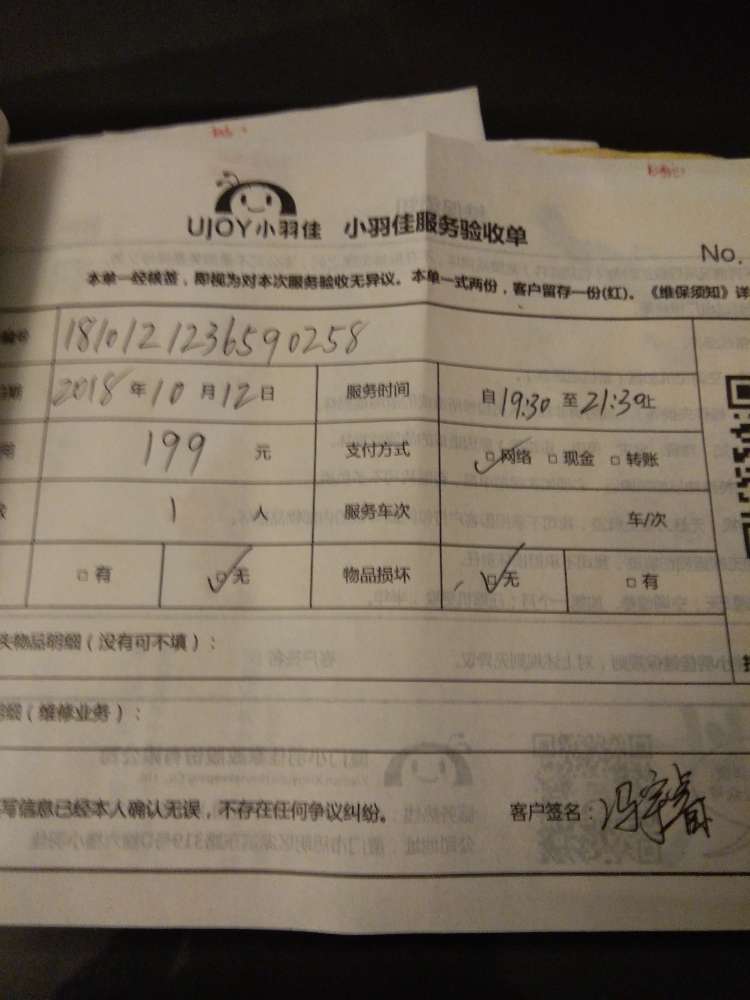 UJOY小羽佳 小羽佳服务验收单
No.
本单一经核签，即视为对本次服务验收无异议。本单一式两份，客户留存一份(红)。《维保须知》详
1810121236590258
2018年10月12日 服务时间 自19:30至21:30止
199元 支付方式 ☑网络 □现金 □转账
1人 服务车次 车/次
□有 ☑无 物品损坏 ☑无 □有
物品明细（没有可不填）：
（维修业务）：
写信息已经本人确认无误，不存在任何争议纠纷。 客户签名：